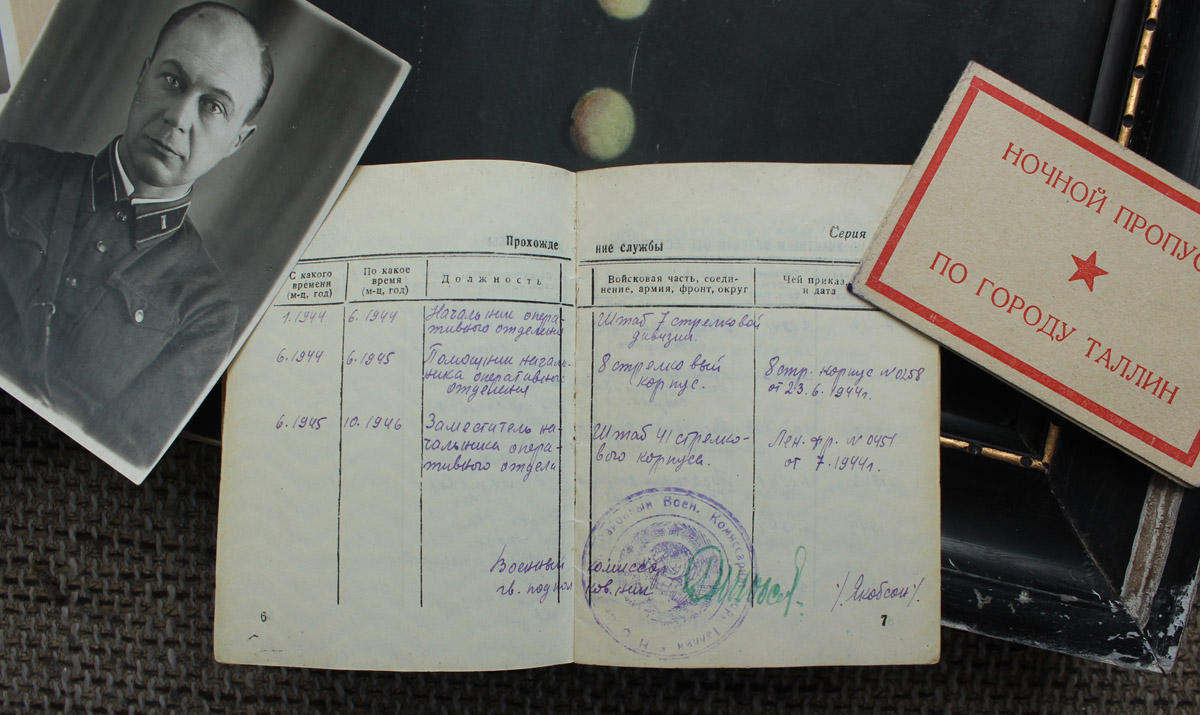 Прохожде ние службы
Серия
С какого времени (м-ц, год)
По какое время (м-ц, год)
Должность
Войсковая часть, соеди-
нение, армия, фронт, округ
Чей приказ
и дата
1.1944 6.1944 Начальник опера-
тивного отделения
Штаб 7 стрелковой
дивизии.
6.1944 6.1945 Помощник началь-
ника оперативного
отделения
8 стрелковый
корпус.
8 стр. корпус № 0258
от 23.6.1944г.
6.1945 10.1946 Заместитель на-
чальника опера-
тивного отдела
Штаб 41 стрелко-
вого корпуса.
Лен. фр. № 0451
от 7.1944г.
Военный комиссар
гв. подполковник
/Якобсон/.
Воен. Комиссар
6
7
НОЧНОЙ ПРОПУС
ПО ГОРОДУ ТАЛЛИН